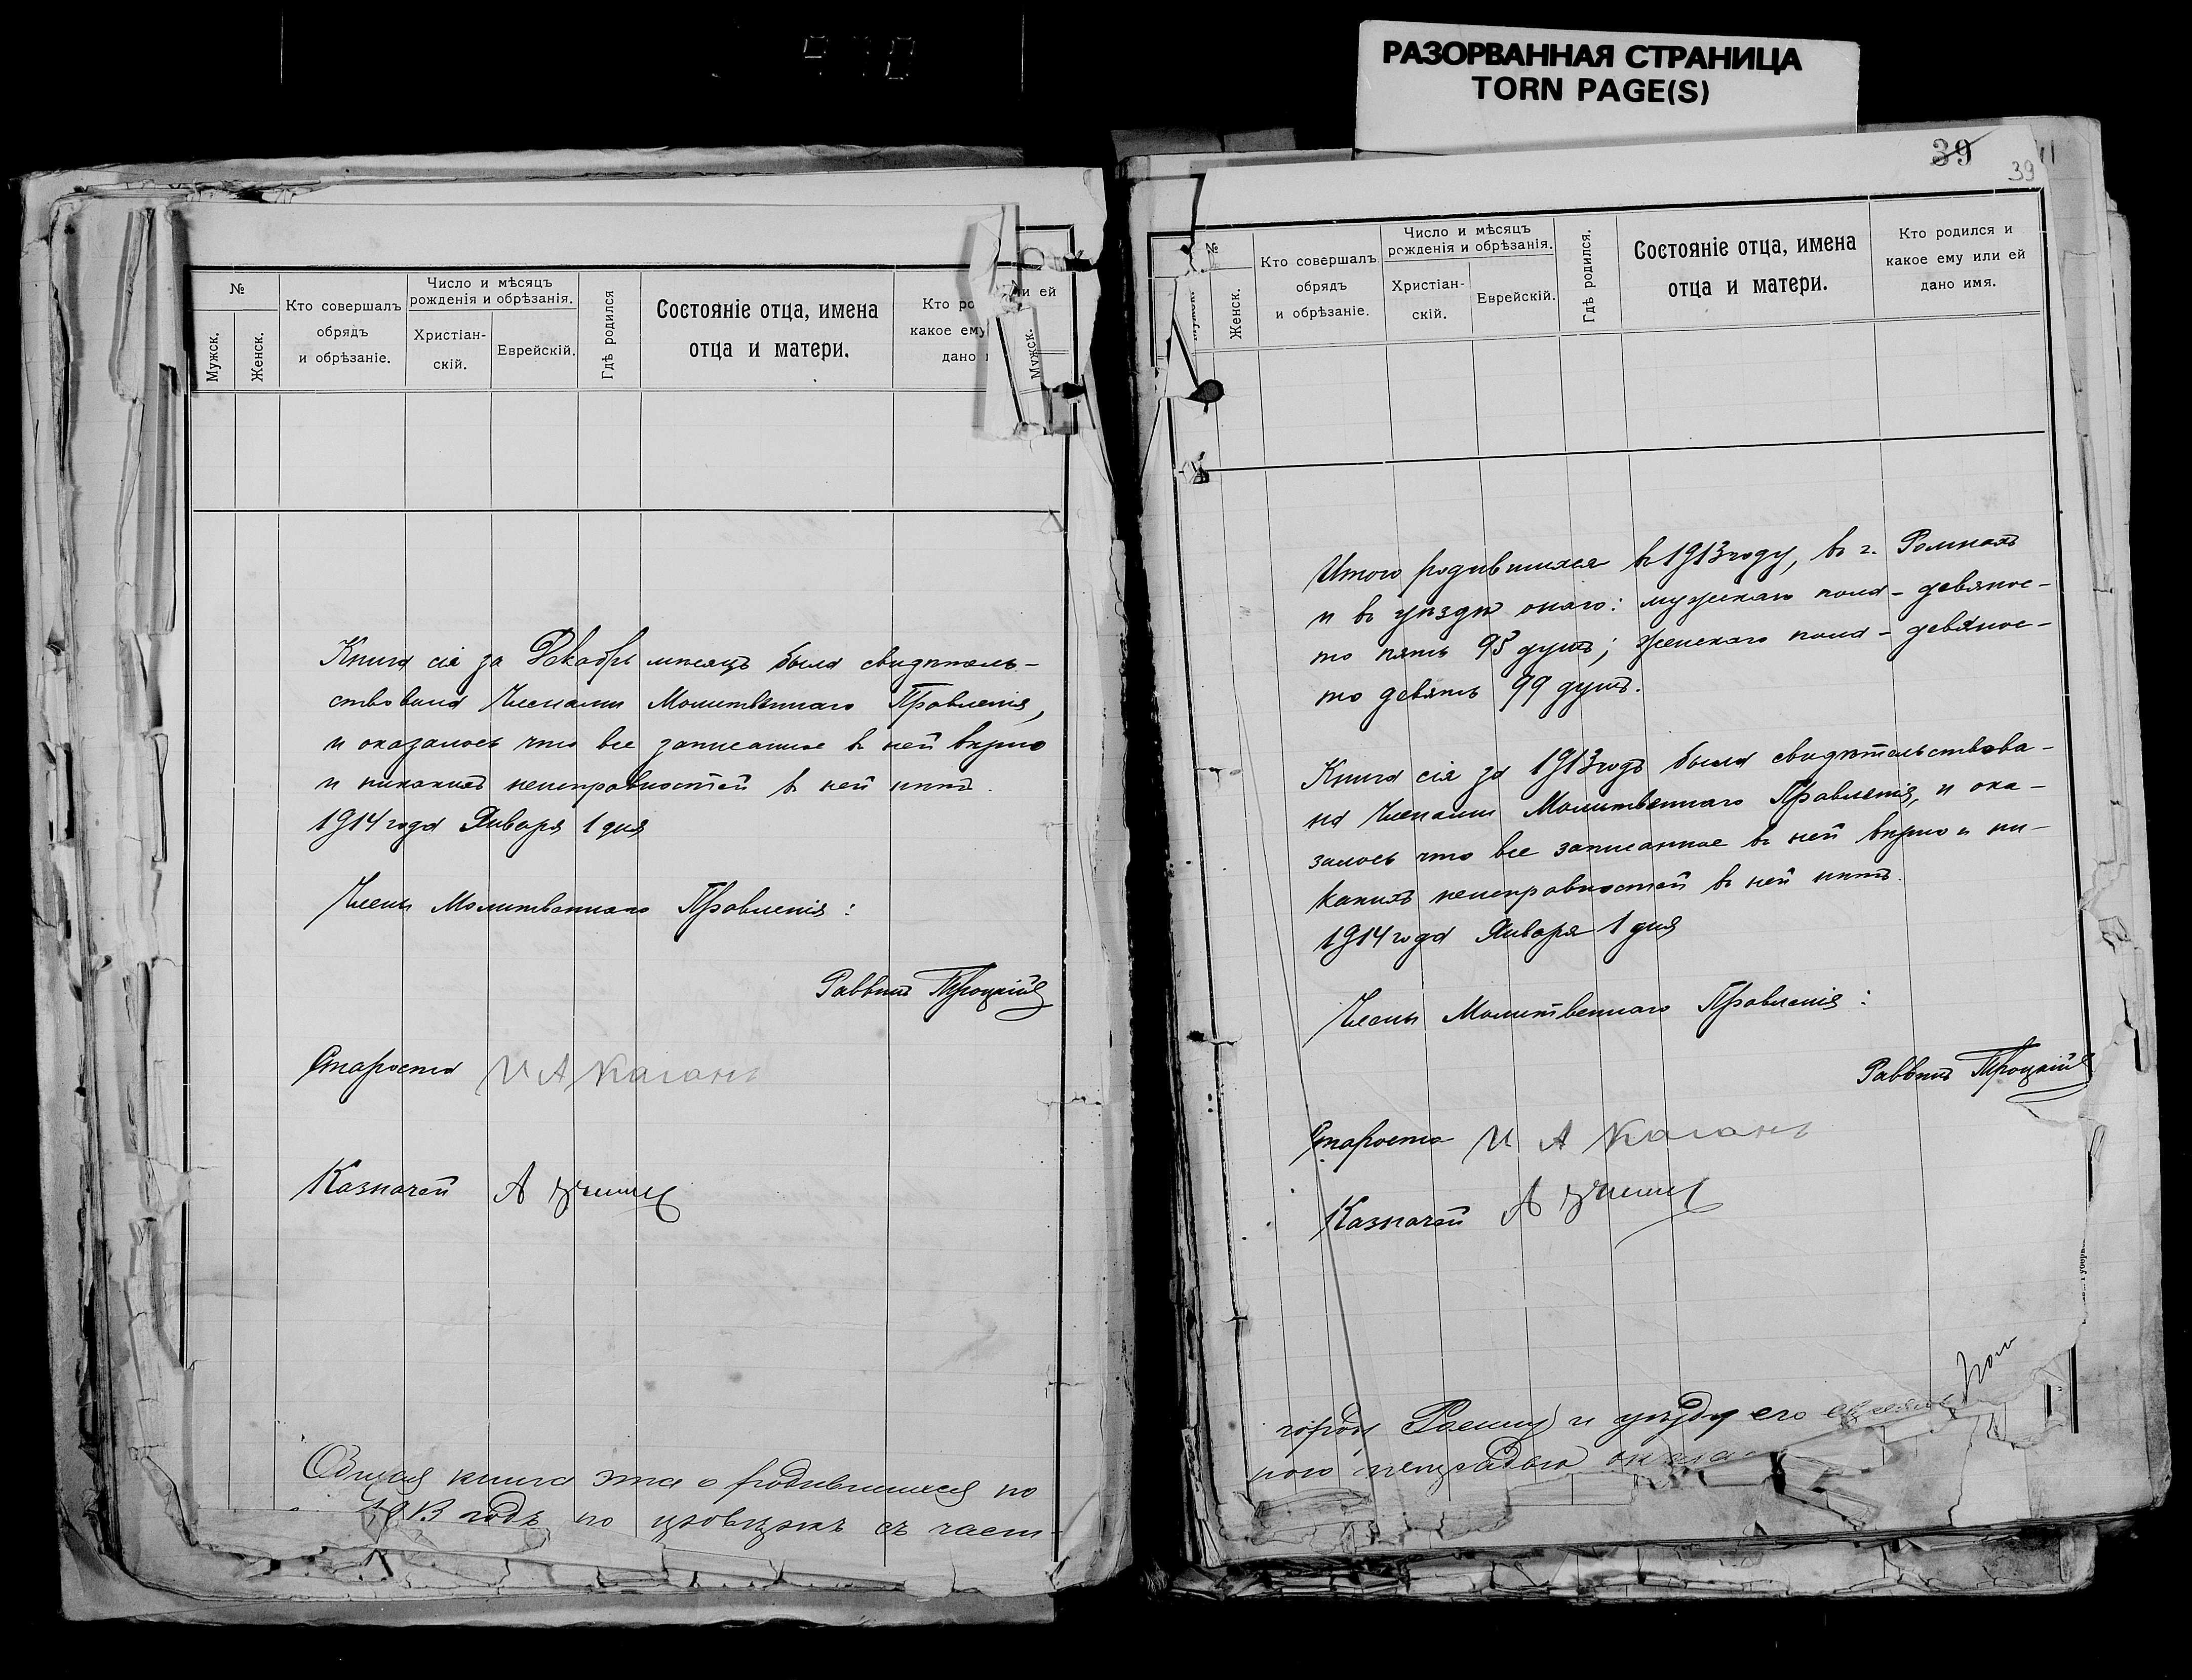 РАЗОРВАННАЯ СТРАНИЦА
TORN PAGE(S)
№
Мужск.
Женск.
Кто совершалъ
обрядъ
и обрѣзаніе.
Число и мѣсяцъ
рожденія и обрѣзанія.
Христіан-
скій.
Еврейскій.
Гдѣ родился
Состояніе отца, имена
отца и матери.
Кто ро
какое ему
дано
и ей
Мужск.
Книга сія за Декабрь мѣсяцъ была свидѣтель-
ствована Членами Молитвеннаго Правленія,
и оказалось что все записанное въ ней вѣрно
и никакихъ неисправностей въ ней нѣтъ.
1914 года Января 1 дня
Члены Молитвеннаго Правленія:
Раввинъ Троцкій
Староста И А Каганъ
Казначей А
Общая книга эта о родившихся по
1913 годъ по провѣркѣ съ част-
39
39
№
Мужск.
Женск.
Кто совершалъ
обрядъ
и обрѣзаніе.
Число и мѣсяцъ
рожденія и обрѣзанія.
Христіан-
скій.
Еврейскій.
Гдѣ родился.
Состояніе отца, имена
отца и матери.
Кто родился и
какое ему или ей
дано имя.
Итого родившихся въ 1913 году, въ г. Ромнахъ
и въ уѣздѣ онаго: мужскаго пола - девянос-
то пять 95 душъ; женскаго пола - девянос-
то девять 99 душъ.
Книга сія за 1913 годъ была свидѣтельствова-
на Членами Молитвеннаго Правленія, и ока-
залось что все записанное въ ней вѣрно и ни-
какихъ неисправностей въ ней нѣтъ.
1914 года Января 1 дня
Члены Молитвеннаго Правленія:
Раввинъ Троцкій
Староста И А Каганъ
Казначей А
городу и уѣзду его
ною